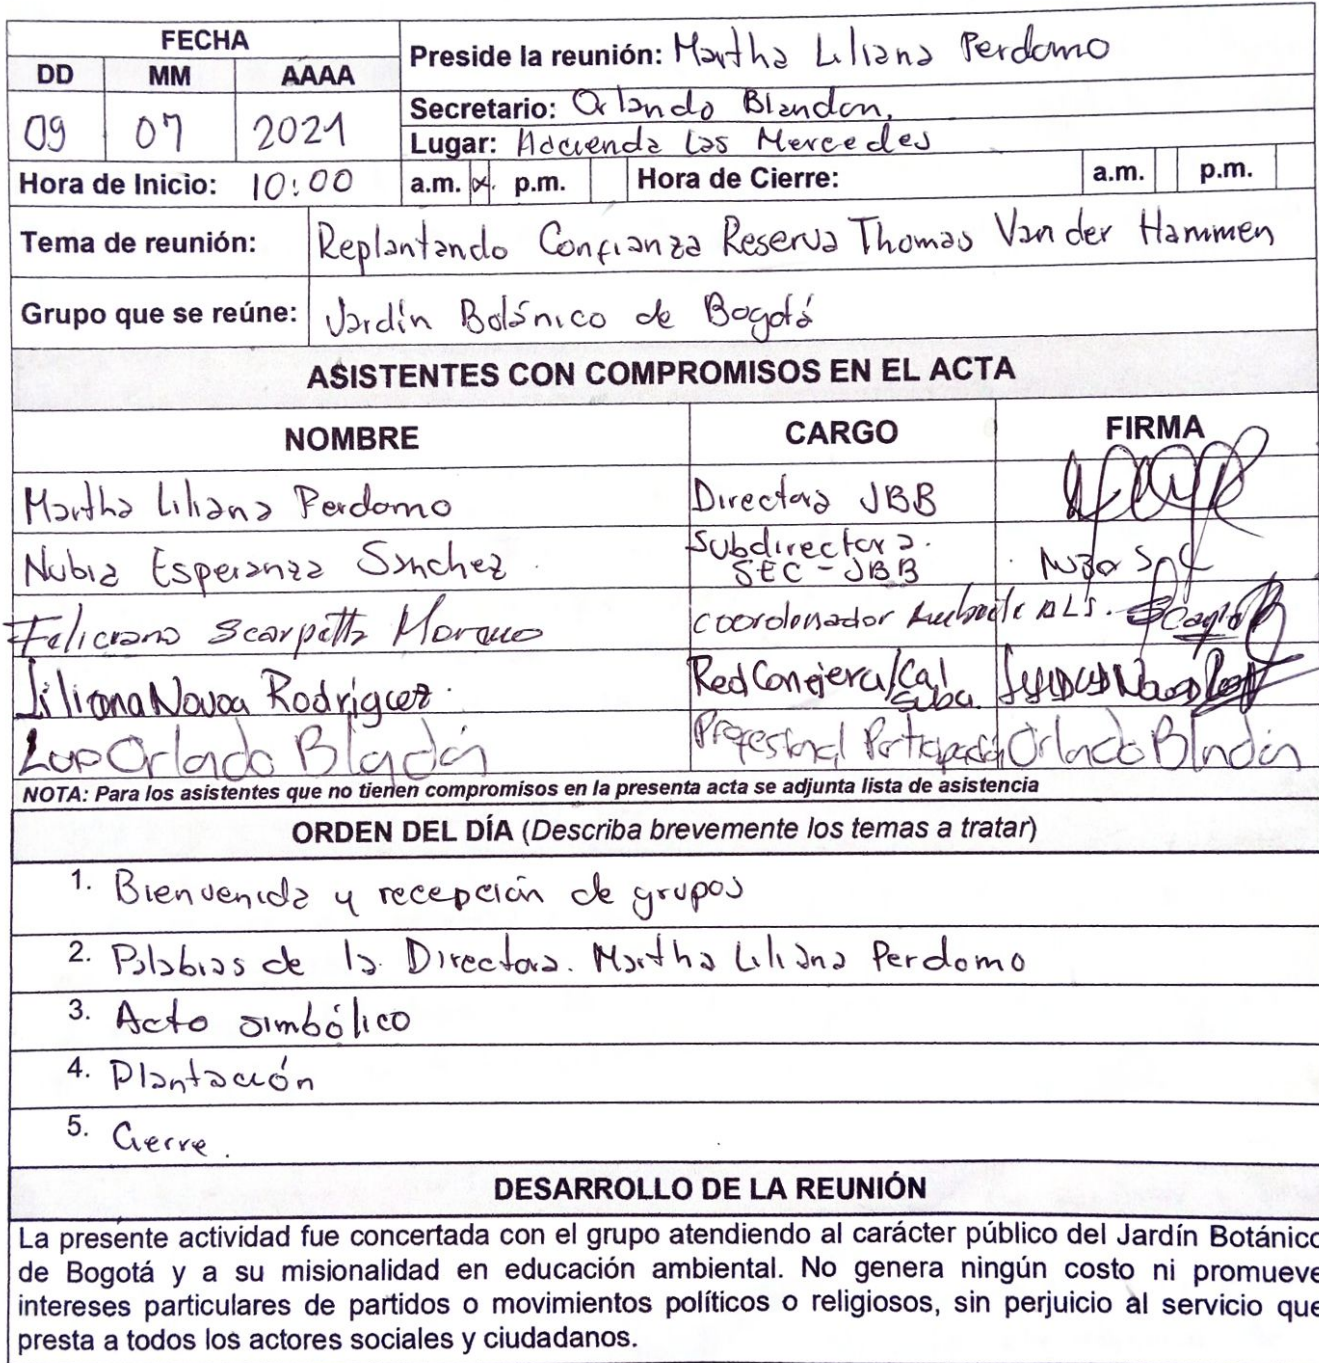 FECHA
DD MM AAAA
09 07 2021
Preside la reunión: Martha Liliana Perdomo
Secretario: Orlando Blandon.
Lugar: Hacienda Las Mercedes
Hora de Inicio: 10:00 a.m. x p.m. Hora de Cierre: a.m. p.m.
Tema de reunión: Replantando Confianza Reserva Thomas Van der Hammen
Grupo que se reúne: Jardín Botánico de Bogotá
ASISTENTES CON COMPROMISOS EN EL ACTA
NOMBRE CARGO FIRMA
Martha Liliana Perdomo Directora JBB
Nubia Esperanza Sánchez Subdirectora.
SEC - JBB
Feliciano Scarpetta Moreno coordonador ALS.
Liliana Novoa Rodríguez. Red Conejera/Cal
Suba.
Orlando Blandón Profesional Participación Orlando Blandón
NOTA: Para los asistentes que no tienen compromisos en la presenta acta se adjunta lista de asistencia
ORDEN DEL DÍA (Describa brevemente los temas a tratar)
1. Bienvenida y recepción de grupos
2. Palabras de la Directora. Martha Liliana Perdomo
3. Acto simbólico
4. Plantación
5. Cierre.
DESARROLLO DE LA REUNIÓN
La presente actividad fue concertada con el grupo atendiendo al carácter público del Jardín Botánico
de Bogotá y a su misionalidad en educación ambiental. No genera ningún costo ni promueve
intereses particulares de partidos o movimientos políticos o religiosos, sin perjuicio al servicio que
presta a todos los actores sociales y ciudadanos.